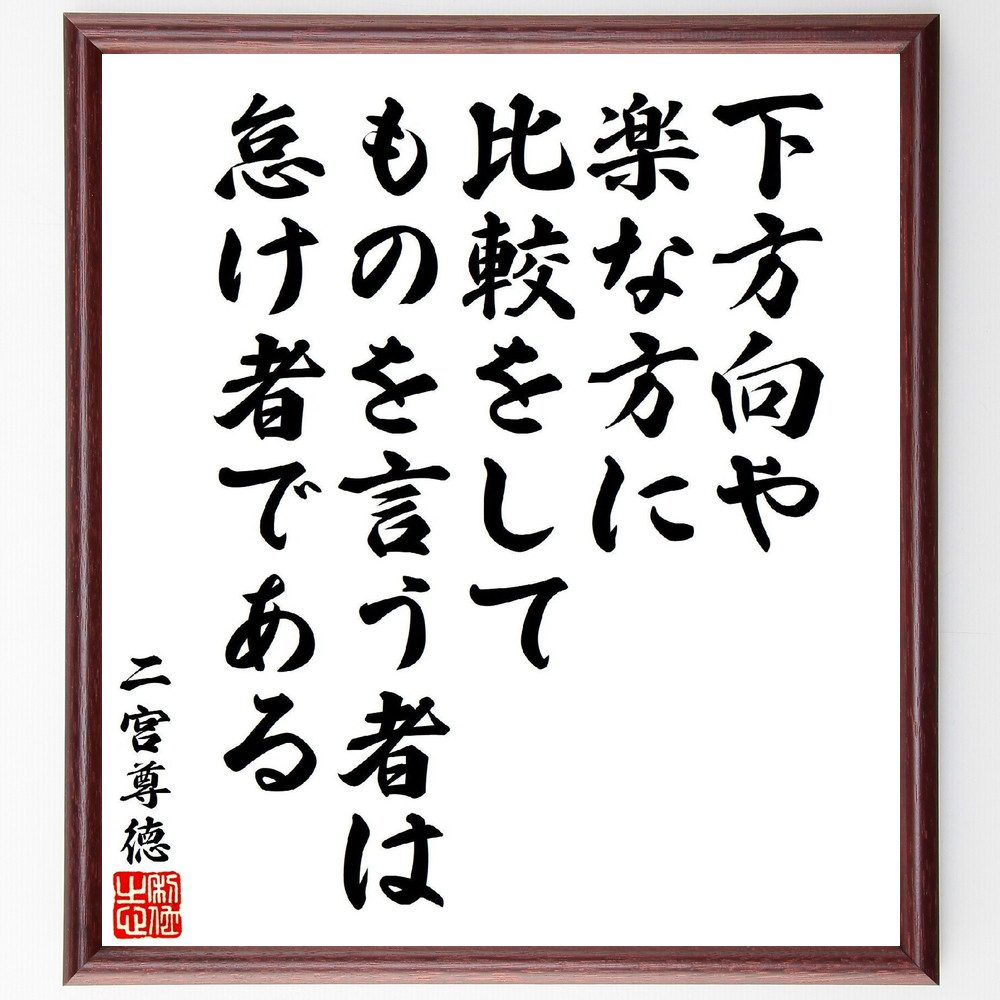 下方向や
楽な方に
比較をして
ものを言う者は
怠け者である
二宮尊徳